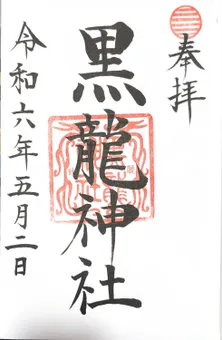 奉拝
黒龍神社
令和六年五月二日